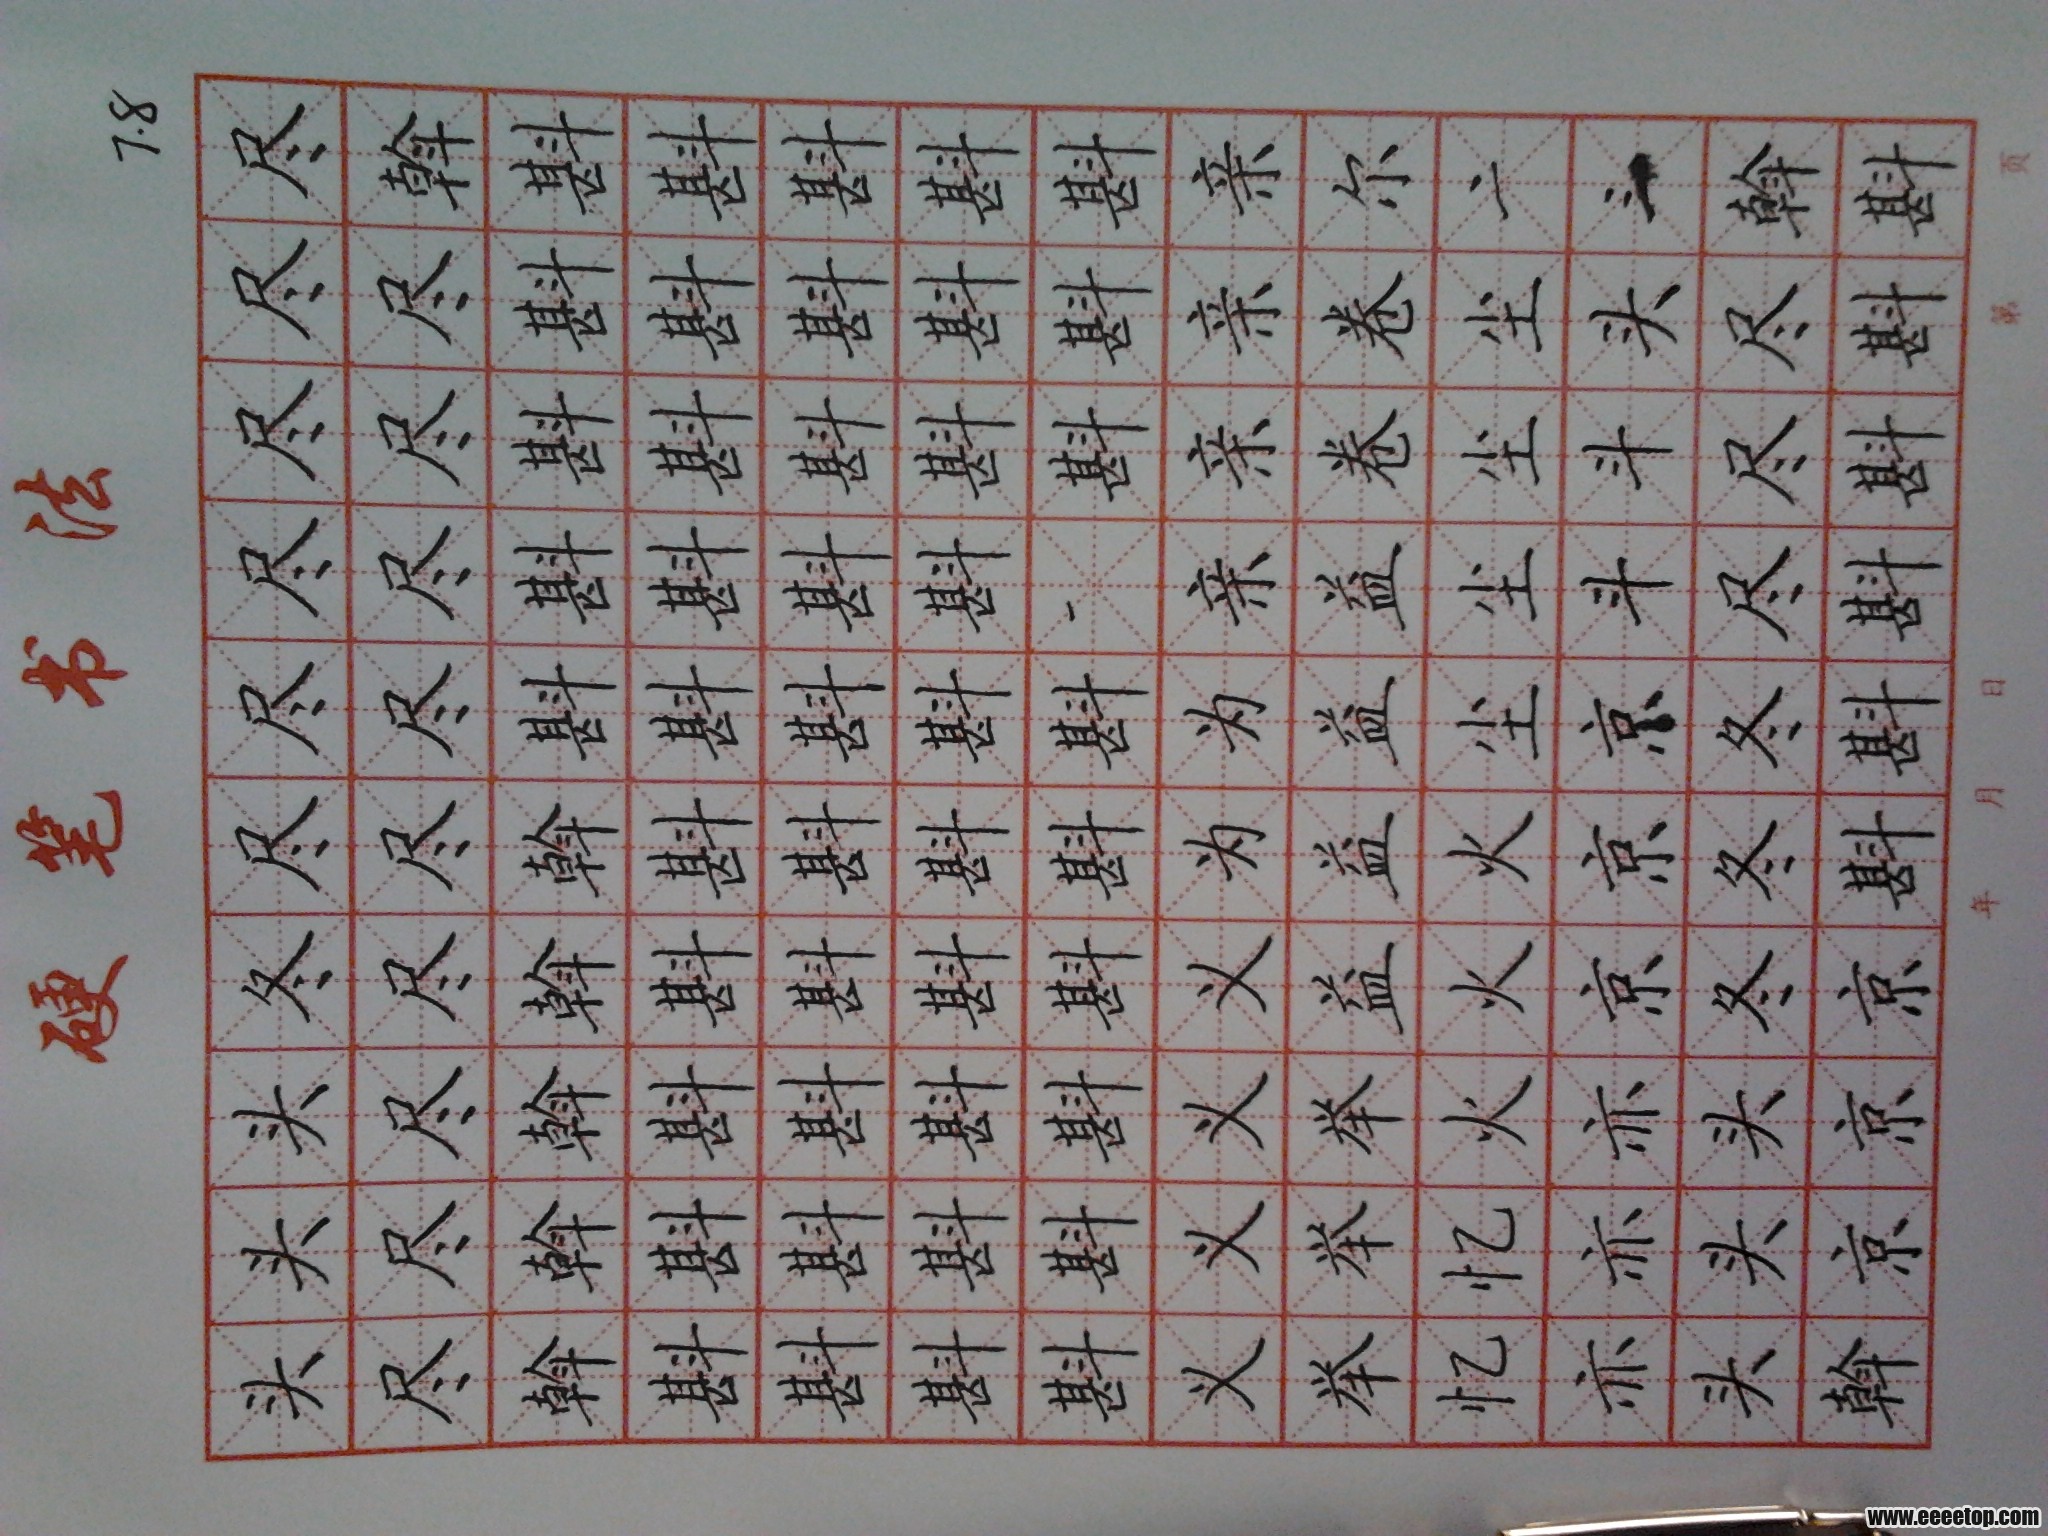 硬笔书法
7.8
头头头冬尽尽尽尽尽尽
尽尽尽尽尽尽尽尽尽斡
斡斡斡斡斡斟斟斟斟斟
斟斟斟斟斟斟斟斟斟斟
斟斟斟斟斟斟斟斟斟斟
斟斟斟斟斟斟斟斟斟斟
斟斟斟斟斟斟斟斟斟
义义义义为为亲亲亲亲
举举举益益益益卷卷尔
忆忆火火火尘尘尘尘
亦亦亦京京京斗斗头
头头头冬冬冬尽尽尽斡
斡京京京斟斟斟斟斟斟
年 月 日 第 页
www.eeeetop.com